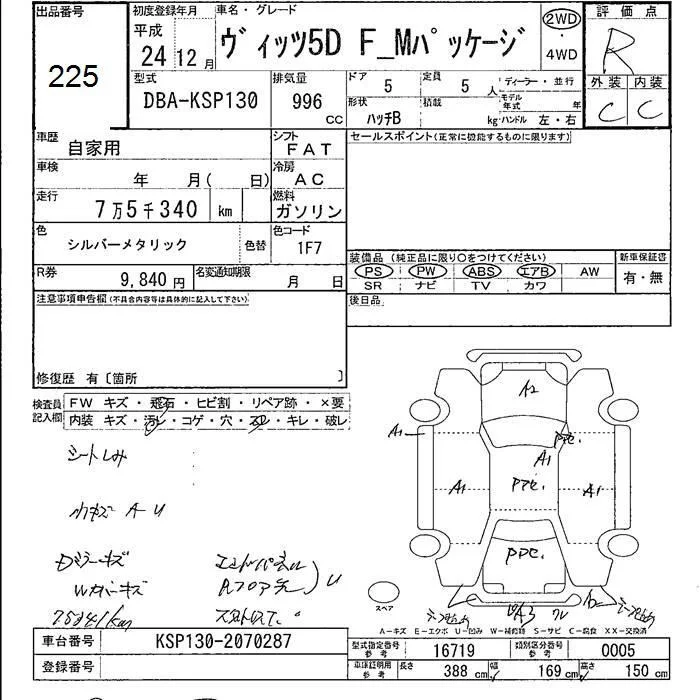 出品番号
225
初度登録年月
平成
24 12月
車名・グレード
ヴィッツ5D F_Mパッケージ
2WD
・
4WD
評価点
R
外装 内装
C C
型式
DBA-KSP130
排気量
996
CC
ドア
5
定員
5 人
ディーラー・並行
形状
ハッチB
積載
kg
モデル年式 年
ハンドル 左・右
車歴
自家用
シフト
FAT
セールスポイント(正常に機能するものに限ります)
車検
年 月( 日)
冷房
AC
走行
7万5千340 km
燃料
ガソリン
色
シルバーメタリック
色替
色コード
1F7
装備品(純正品に限り○をつけてください)
PS PW ABS エアB AW
SR ナビ TV カワ
新車保証書
有・無
R券
9,840円
名変通知期限
月 日
後日品
注意事項申告欄(不具合内容等は具体的に記入して下さい)
修復歴 有〔箇所 〕
検査員記入欄
FW キズ・飛石・ヒビ割・リペア跡・×要
内装 キズ・汚レ・コゲ・穴・スレ・キレ・破レ
シートしみ
小キズ A-U
Dミラーキズ
Wカバーキズ
エンドパネル
Rフロア
U
A2
A1
A1
PPC.
A1
PPC.
A1
PPC.
スペア
A-キズ E-エクボ U-凹み W-補修跡 S-サビ C-腐食 XX-交換済
車台番号
KSP130-2070287
登録番号
型式指定番号
参考
16719
類別区分番号
参考
0005
車庫証明用
参考
長さ
388 cm
幅
169 cm
高さ
150 cm